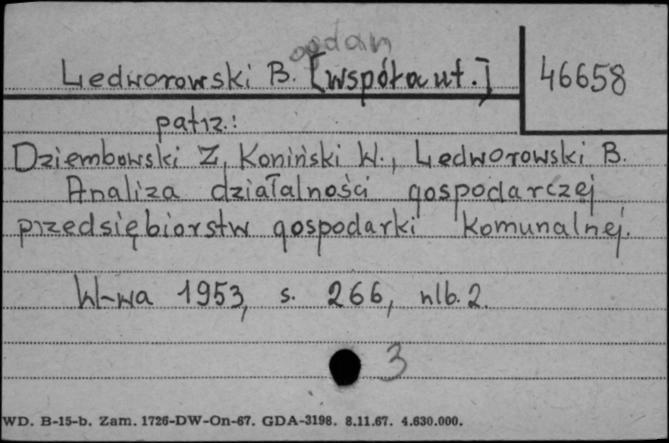 ogdan
Ledworowski B. [współaut.]
46658
patrz:
Dziembowski Z., Koniński W., Ledworowski B.
Analiza działalności gospodarczej
przedsiębiorstw gospodarki komunalnej.
W-wa 1953, s. 266, nlb. 2.
3
WD. B-15-b. Zam. 1726-DW-On-67. GDA-3198. 8.11.67. 4.630.000.